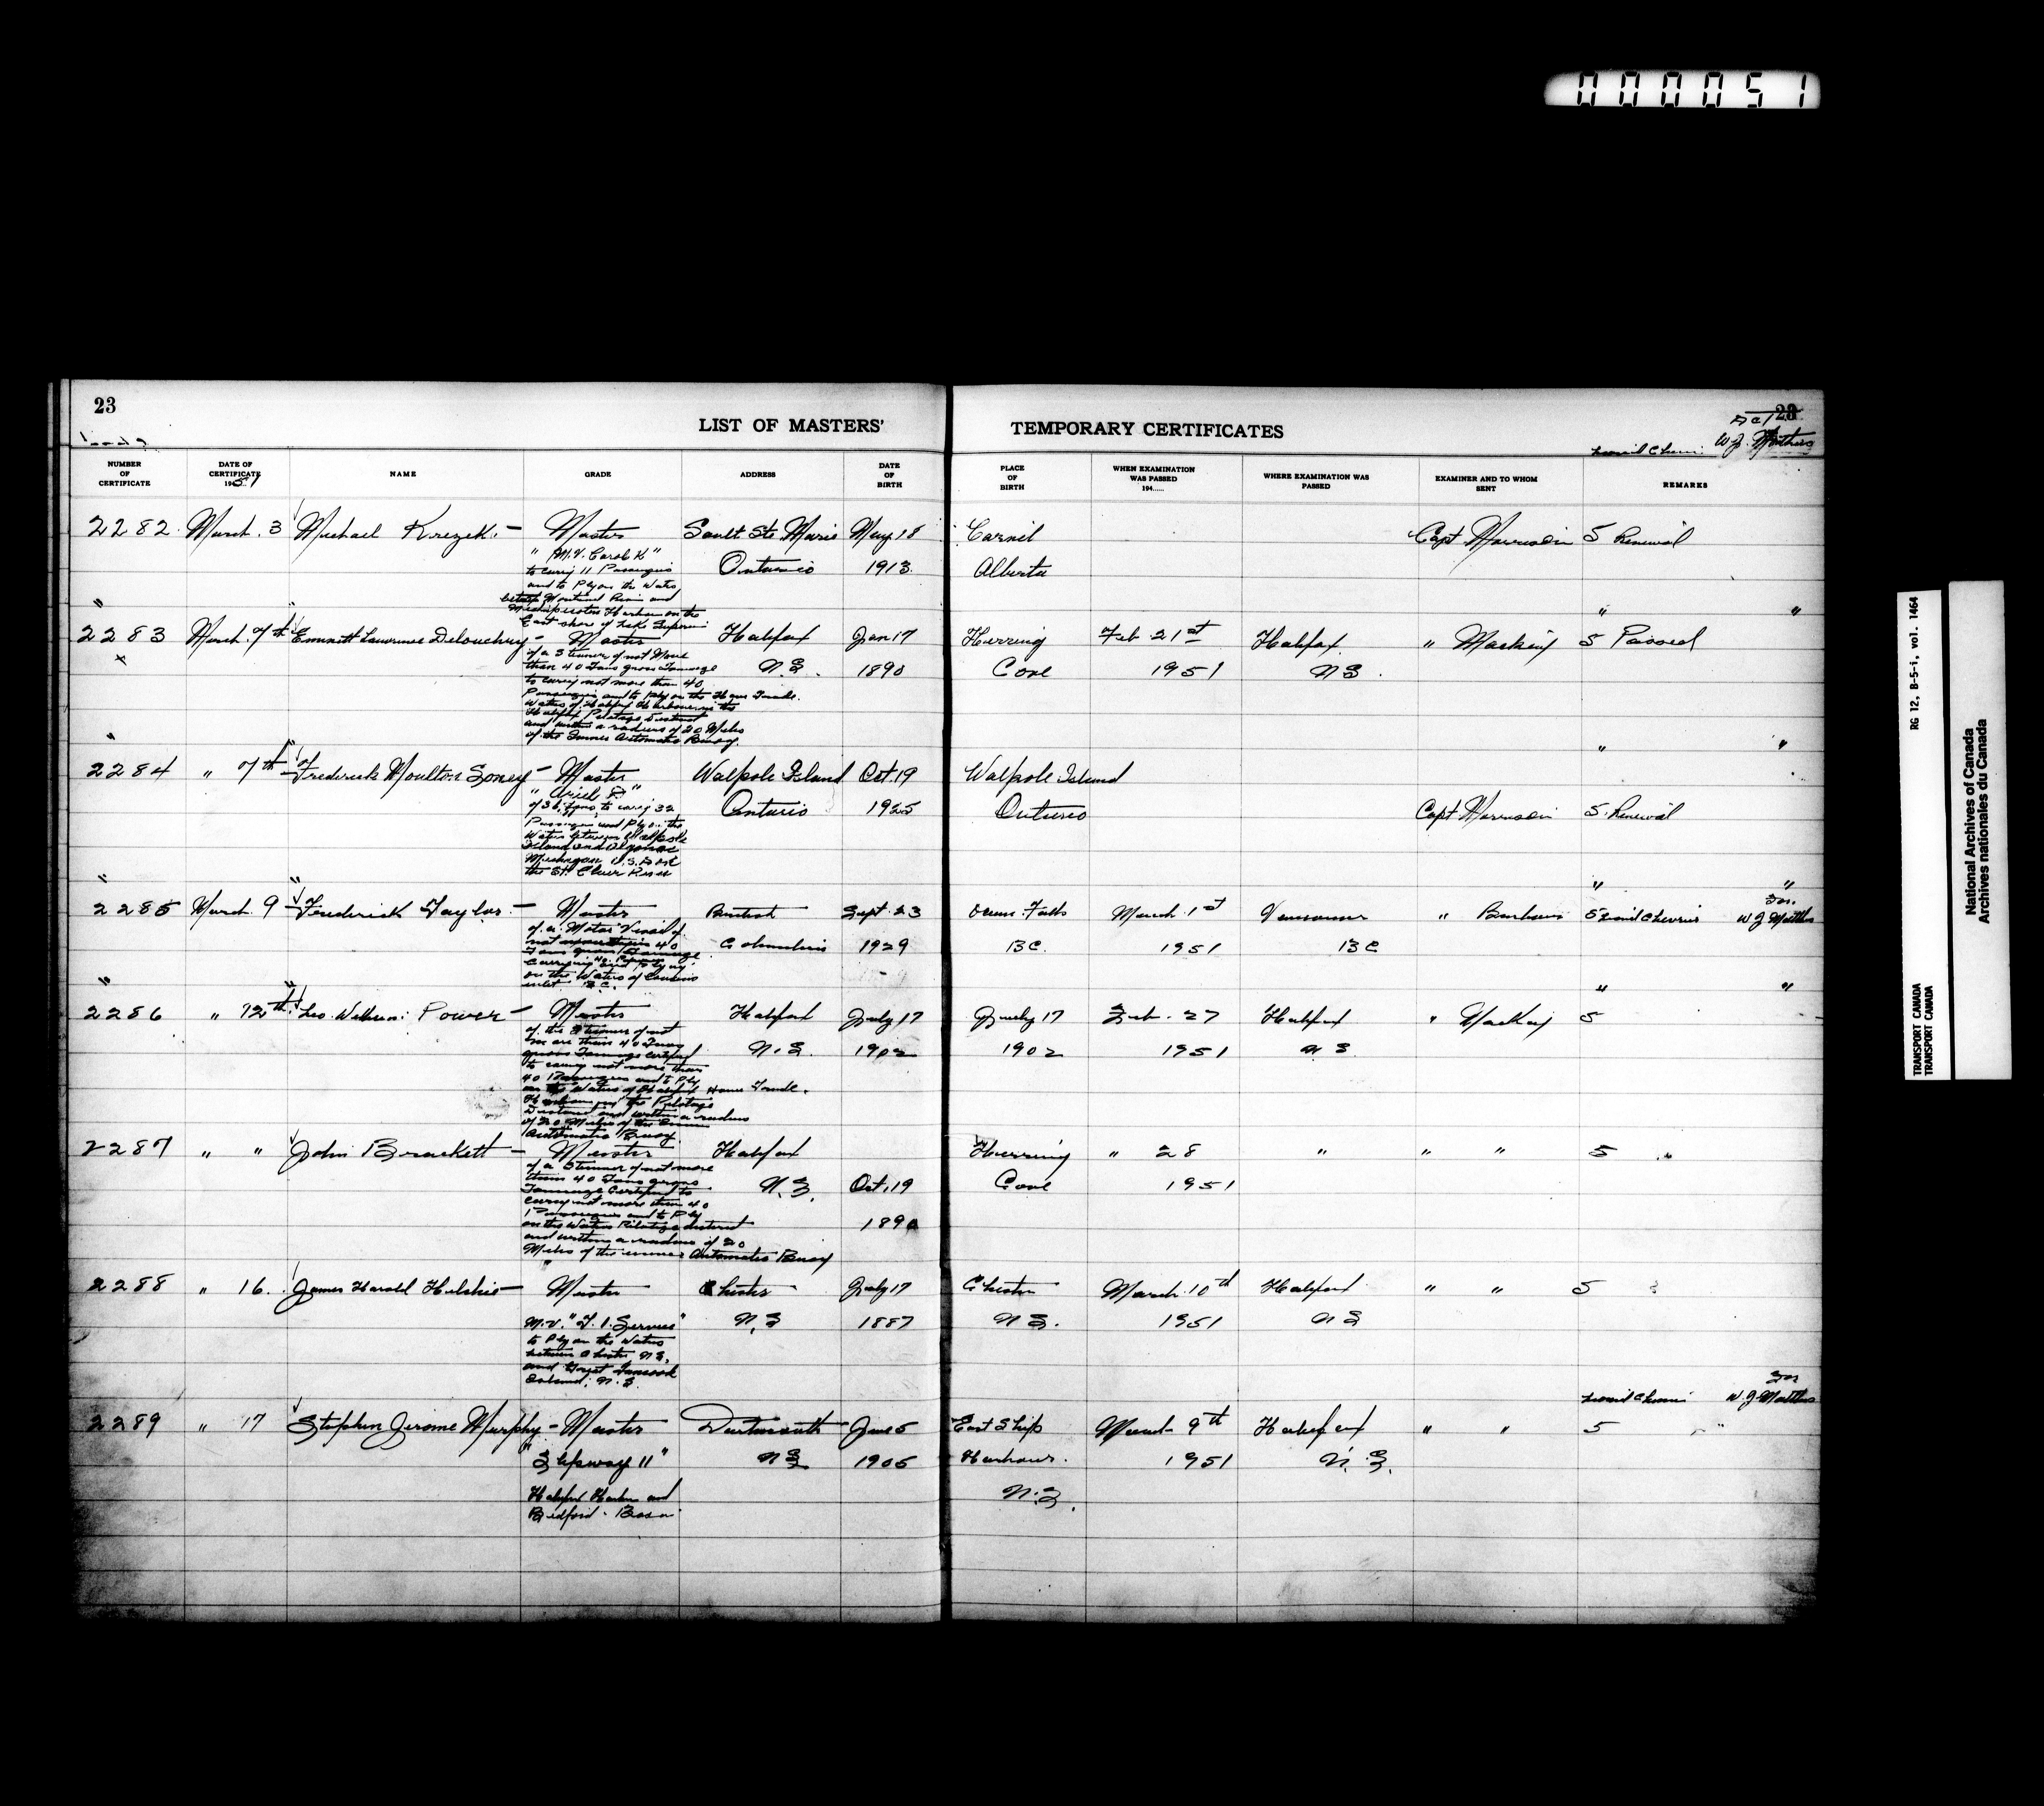 000051
23
LIST OF MASTERS'
TEMPORARY CERTIFICATES
23
W J. Matthews
NUMBER OF CERTIFICATE
DATE OF CERTIFICATE 1951
NAME
GRADE
ADDRESS
DATE OF BIRTH
PLACE OF BIRTH
WHEN EXAMINATION WAS PASSED 194......
WHERE EXAMINATION WAS PASSED
EXAMINER AND TO WHOM SENT
REMARKS
2282 March. 3 Michael Krezek. – Master Sault Ste. Marie May 18 Alberta Capt Morrison 5 Renewal
"M.V. Carole K"
to carry 11 Passengers Ontario 1913
and to Ply on the Waters
between Montreal River and
Harbour on the
East shore of Lake Superior
2283 March. 7th Emmett Lawrence Delouchry – Master Halifax Jan 17 Herring Feb 21st Halifax " Mackay 5 Passed
of a Steamer of not More
than 40 Tons gross Tonnage N.S. 1890 Cove 1951 N S.
to carry not more than 40
Passengers and to Ply on the Home Trade.
Waters of Halifax Harbour in the
Halifax Pilotage District
and within a radius of 20 Miles
of the Inner Automatic Buoy.
2284 " 7th Frederick Moulton Soney – Master Walpole Island Oct. 19 Walpole Island
of 36 Tons, to carry 32 Ontario 1925 Ontario Capt Morrison 5. Renewal
Passengers and Ply on the
Waters between Walpole
Island and Algonac
Michigan U.S.A.
the St. Clair River
2285 March. 9 – Frederick Taylor. – Master British Sept. 23 Ocean Falls March. 1st Vancouver 5 W J Matthews
of a Motor Vessel of
40 Columbia 1929 B C. 1951 B C
Tons gross Tonnage
on the Waters of Cousins
inlet B.C.
2286 " 12th. Leo. William Power – Master Halifax July 17 July 17 Feb. 27 Halifax " MacKay 5
of the Steamer of not
more than 40 Tons N.S. 1902 1902 1951 N S
gross Tonnage certified
to carry not more than
40 Passengers and to Ply
on the Waters of Halifax Home Trade.
Harbour in the Pilotage
District and within a radius
of 20 Miles of the Inner
Automatic Buoy.
2287 " " John Brackett – Master Halifax Herring " 28 " " " 5 "
of a Steamer of not more
than 40 Tons gross N.S. Oct. 19 Cove 1951
Tonnage Certified to
carry not more than 40
Passengers and to Ply 189
on the Waters Pilotage district
and within a radius of 20
Miles of the inner Automatic Buoy
2288 " 16. James Harold – Master Chester July 17 Chester March. 10th Halifax " " 5
M.V. N.S 1887 N S. 1951 N S
to Ply on the Waters
between Chester N.S.
and Great Tancook
Island, N.S.
W. J Matthews
2289 " 17 Stephen Jerome Murphy – Master Dartmouth June 5 East Ship March 9th Halifax " " 5 "
N S 1905 Harbour. 1951 N. S.
Halifax Harbour and N.S.
Bedford. Basin
RG 12, B-5-i, vol. 1464
TRANSPORT CANADA
TRANSPORT CANADA
National Archives of Canada
Archives nationales du Canada